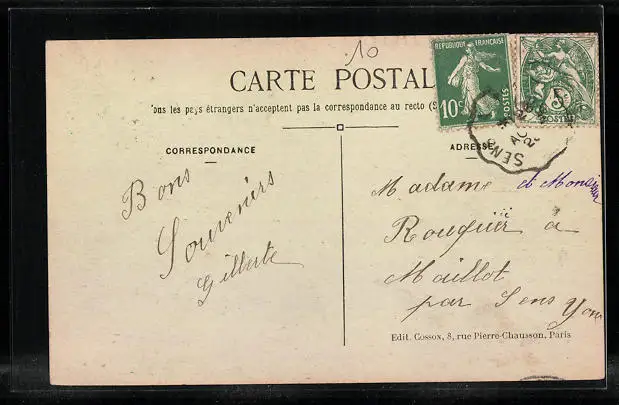 10
CARTE POSTAL
ous les pays étrangers n'acceptent pas la correspondance au recto (S
CORRESPONDANCE
ADRESSE
REPUBLIQUE FRANÇAISE
10c
POSTES
5
POSTES
SENS
Bons
Souvenirs
Gilberte
Madame et Monsieur
Rouguier à
Maillot
par Sens Yonne
Edit. Cossox, 8, rue Pierre-Chausson, Paris